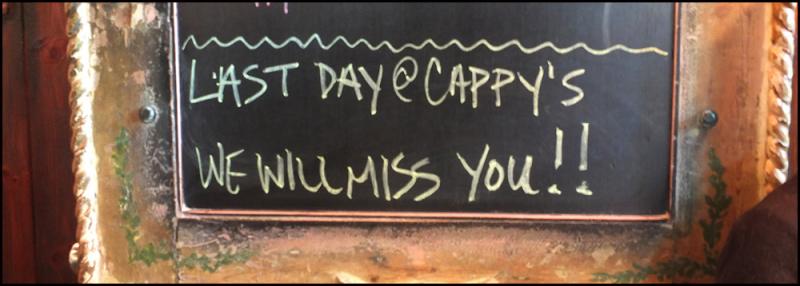 LAST DAY @ CAPPY'S
WE WILL MISS YOU!!